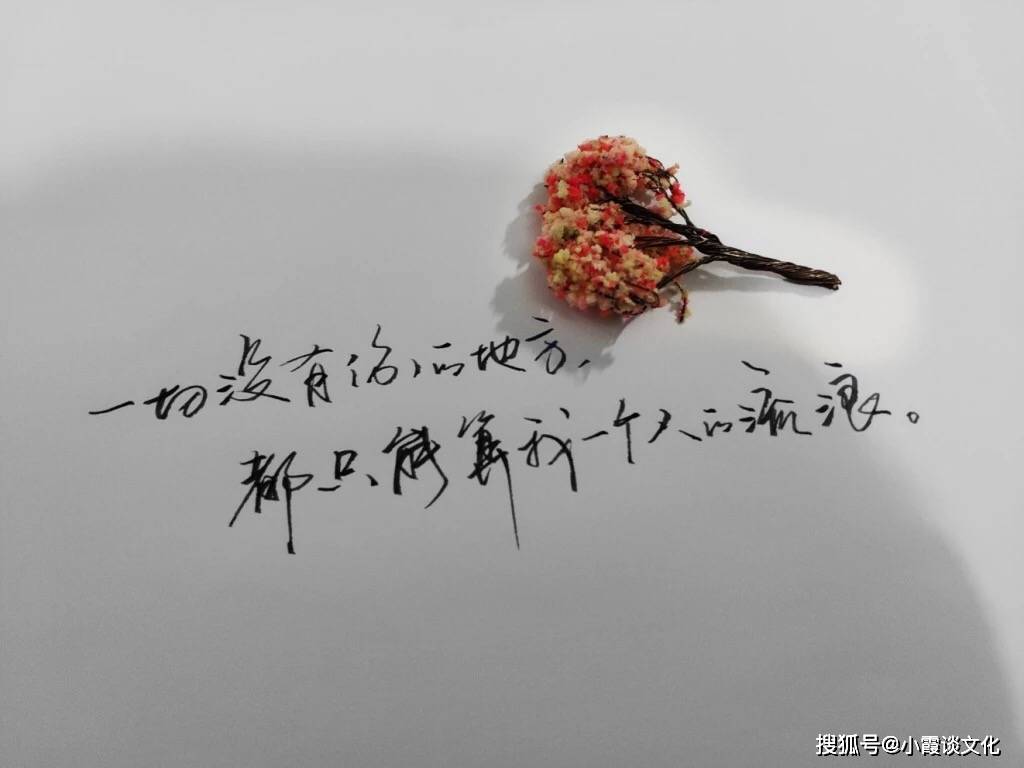 一切没有你的地方，
都只能算我一个人的流浪。
搜狐号@小霞谈文化